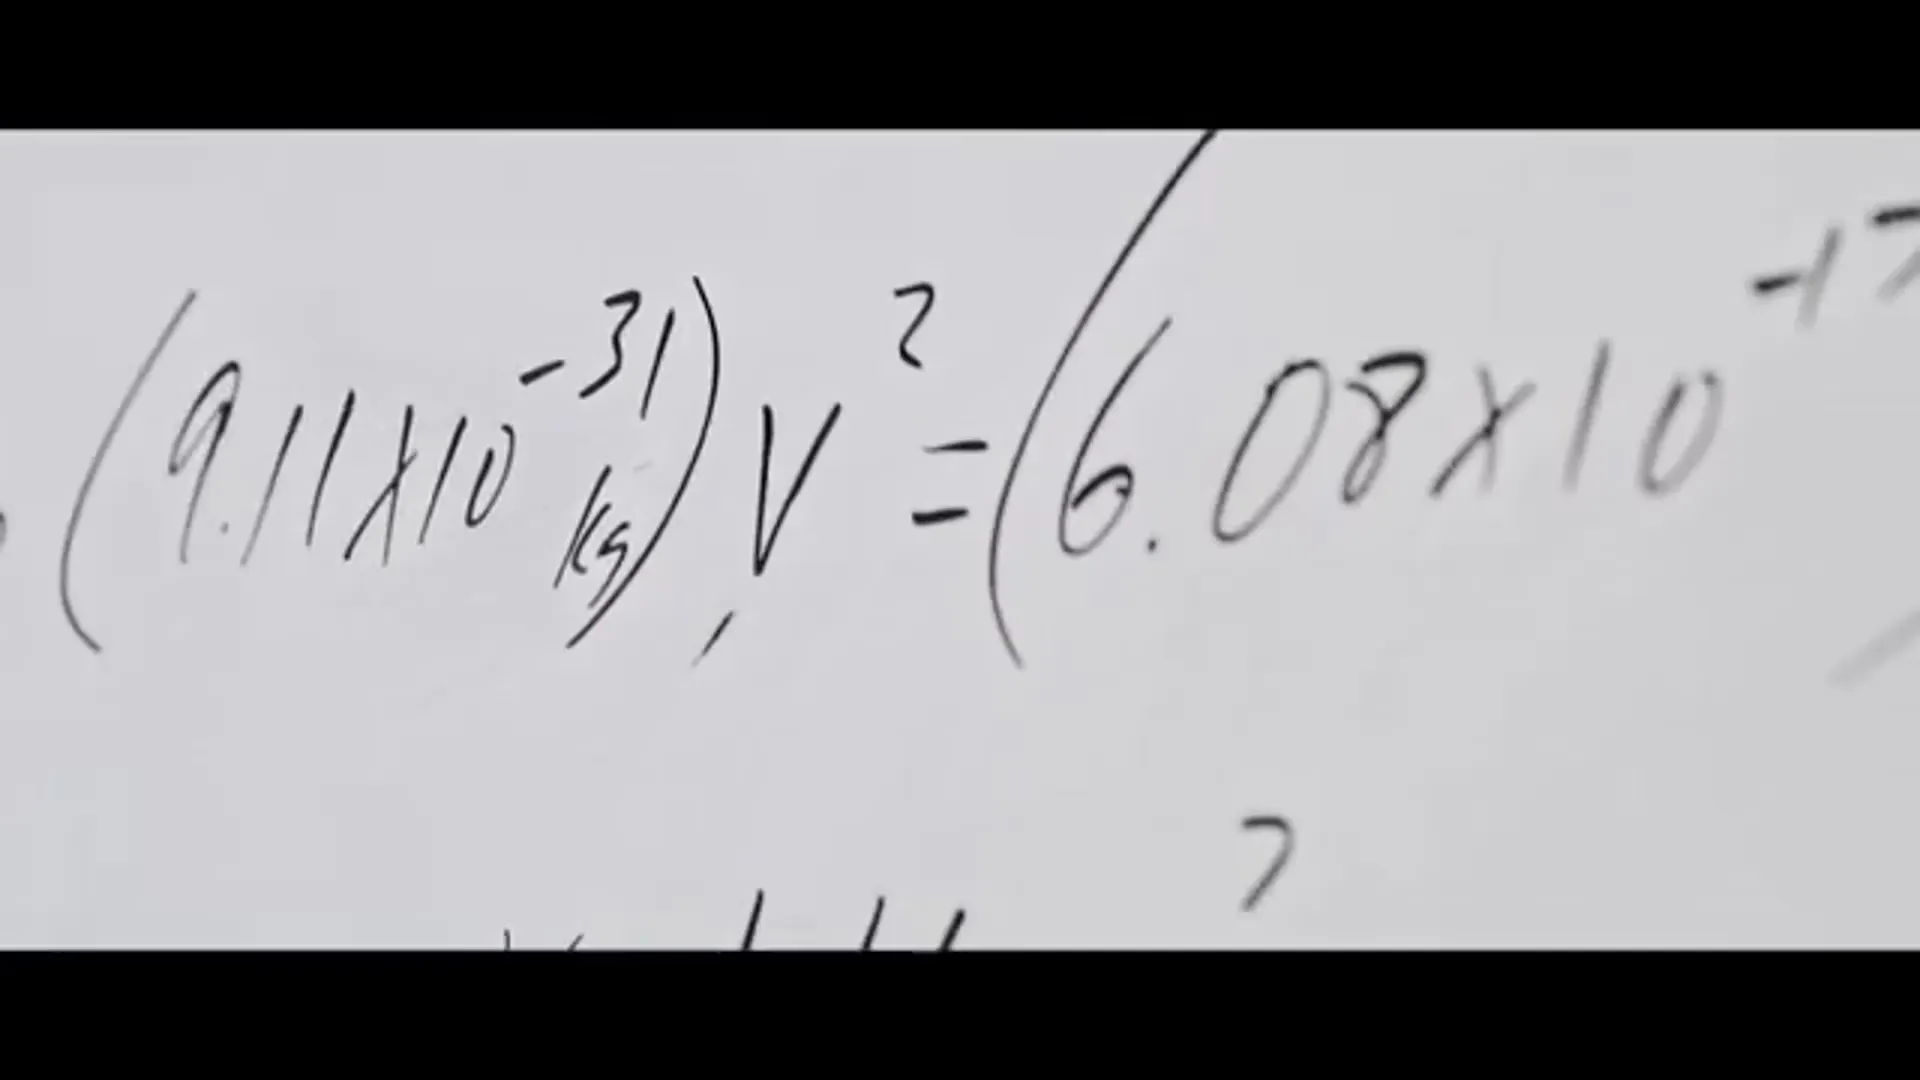 (9.11x10^-31 kg) V^2 = (6.08x10^-17